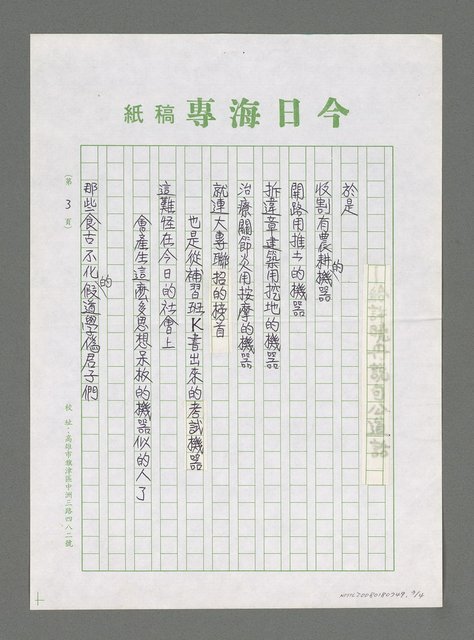 今日海專 稿紙
於是
收割有農耕的機器
開路用推土的機器
拆違章建築用挖地的機器
治療關節炎用按摩的機器
就連大專聯招的榜首
也是從補習班K書出來的考試機器
這難怪在今日的社會上
會產生這麼多思想呆板的機器似的人了
那些食古不化的假道學偽君子們
（第 3 頁）
校址：高雄市旗津區中洲三路四八二號
NMTL20080180749. 3/4